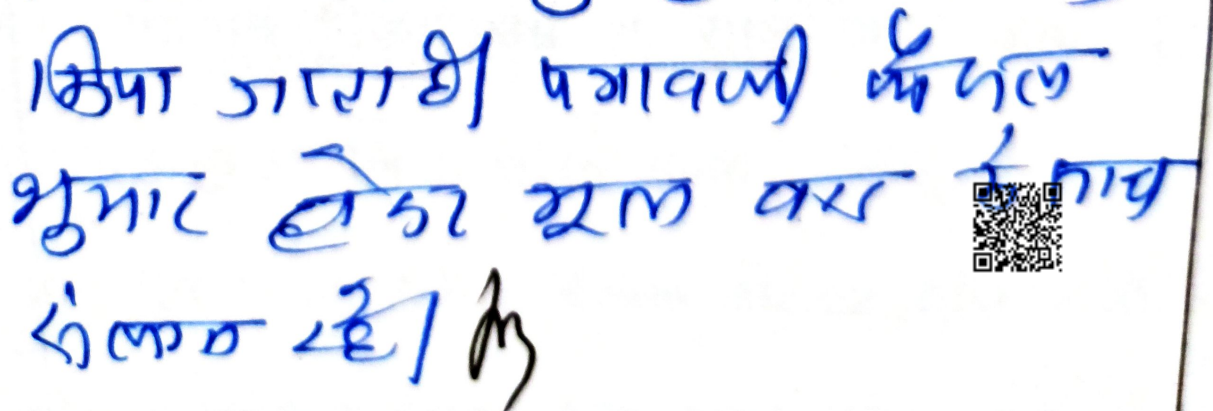 किया जाता है। पत्रावली फैसल
शुमार होकर मूल वाद के साथ
संलग्न रहे।